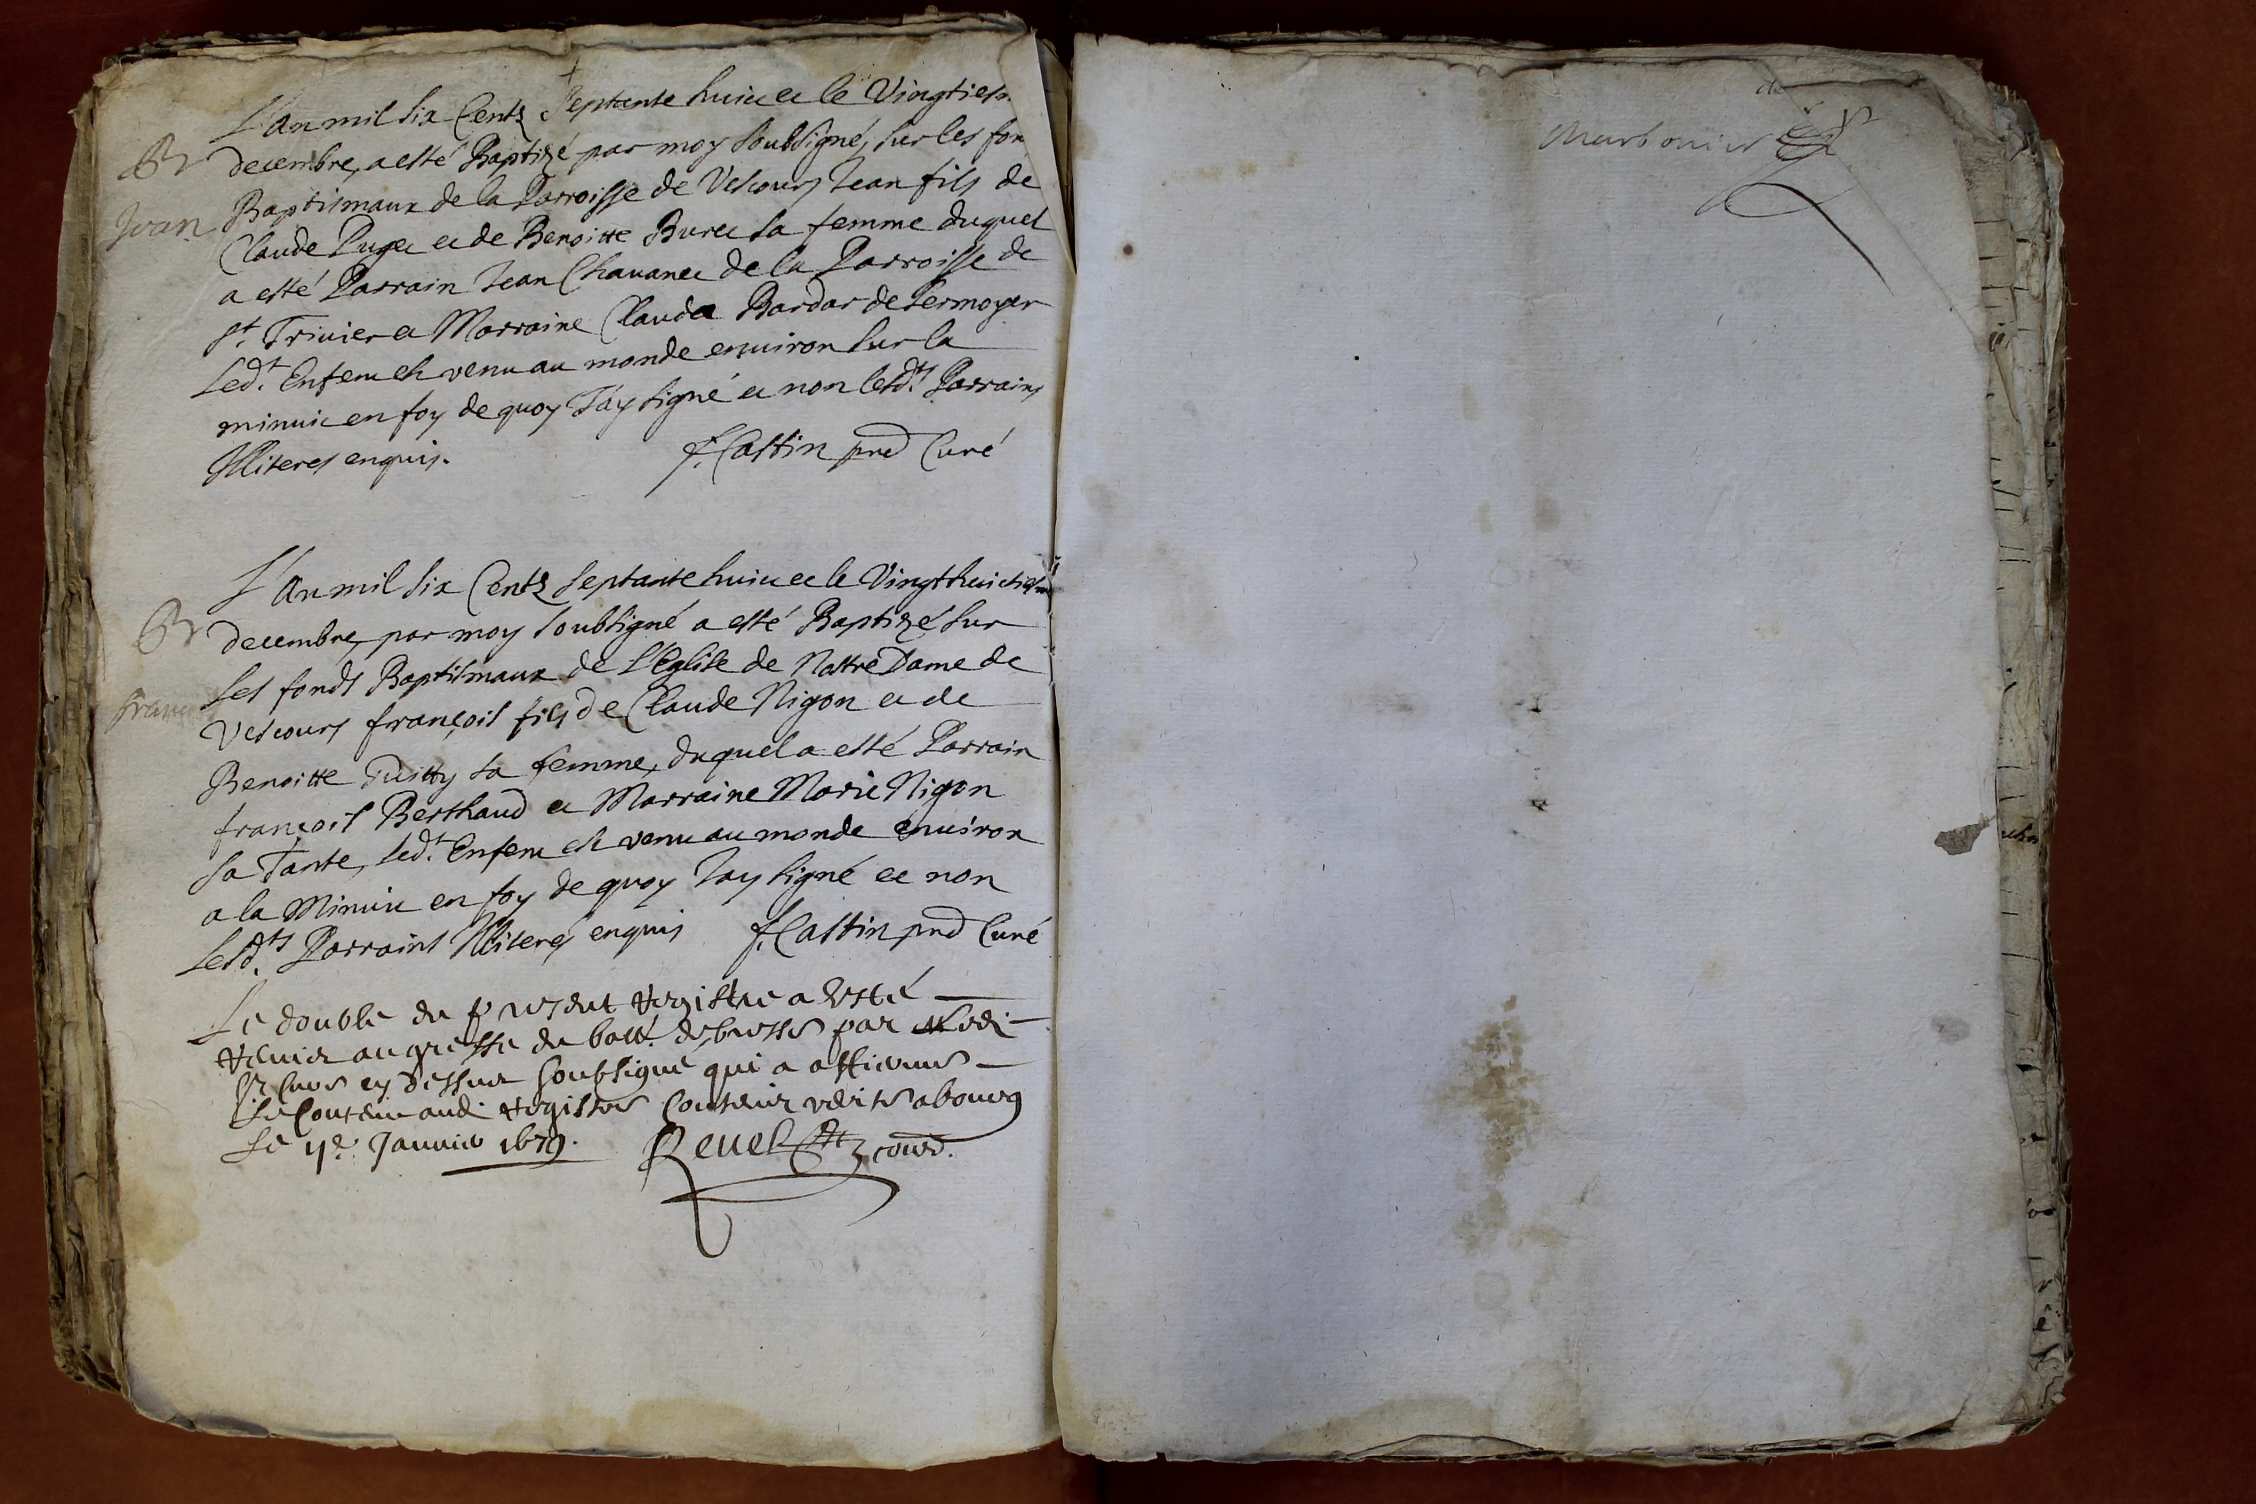 L'An mil six Cents Septante huict et le Vingtiesm
Br
decembre, a esté Baptizé par moy soubsigné, sur les fon
Jean
Baptismaux de la Parroisse de Vescours Jean fils de
Claude Puget et de Benoitte Buret sa femme duquel
a esté Parrain Jean Chavanet de la Parroisse de
St. Trivier et Marraine Clauda Bardar de Sermoyer
Ledt. Enfent est venu au monde environ sur la
minuit en foy de quoy J'ay signé et non lesdts Parrains
Illiteres enquis.
f. Castin pnd Curé
L'An mil six Cents septante huict et le Vingthuictiesme
Br
decembre, par moy soubsigné a esté Baptizé sur
Les fonds Baptismaux de L'Eglise de Nostre Dame de
franc
Vescours françois fils de Claude Nigon et de
Benoitte Guitty sa femme, duquel a esté Parrain
françois Berthaud et Marraine Marie Nigon
sa Tante, Ledt. Enfent est venu au monde environ
a la Minuit en foy de quoy J'ay signé et non
Lesdts Parrains Illiteres enquis
f. Castin pnd Curé
Le double du present Registre a esté
remis au greffe du baill. de bresse par
Sr Cure cy dessus soubsigné qui a affirmé
Le Contenu audi registre Contenir verité a bourg
Le Janvier 1679.
Revel
Marbonier